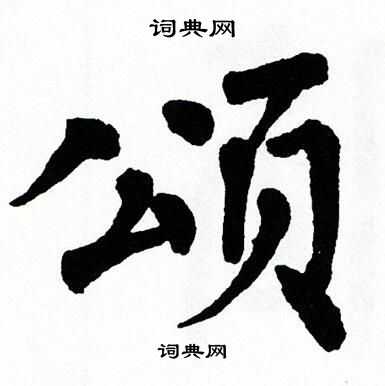 词典网
颂
词典网